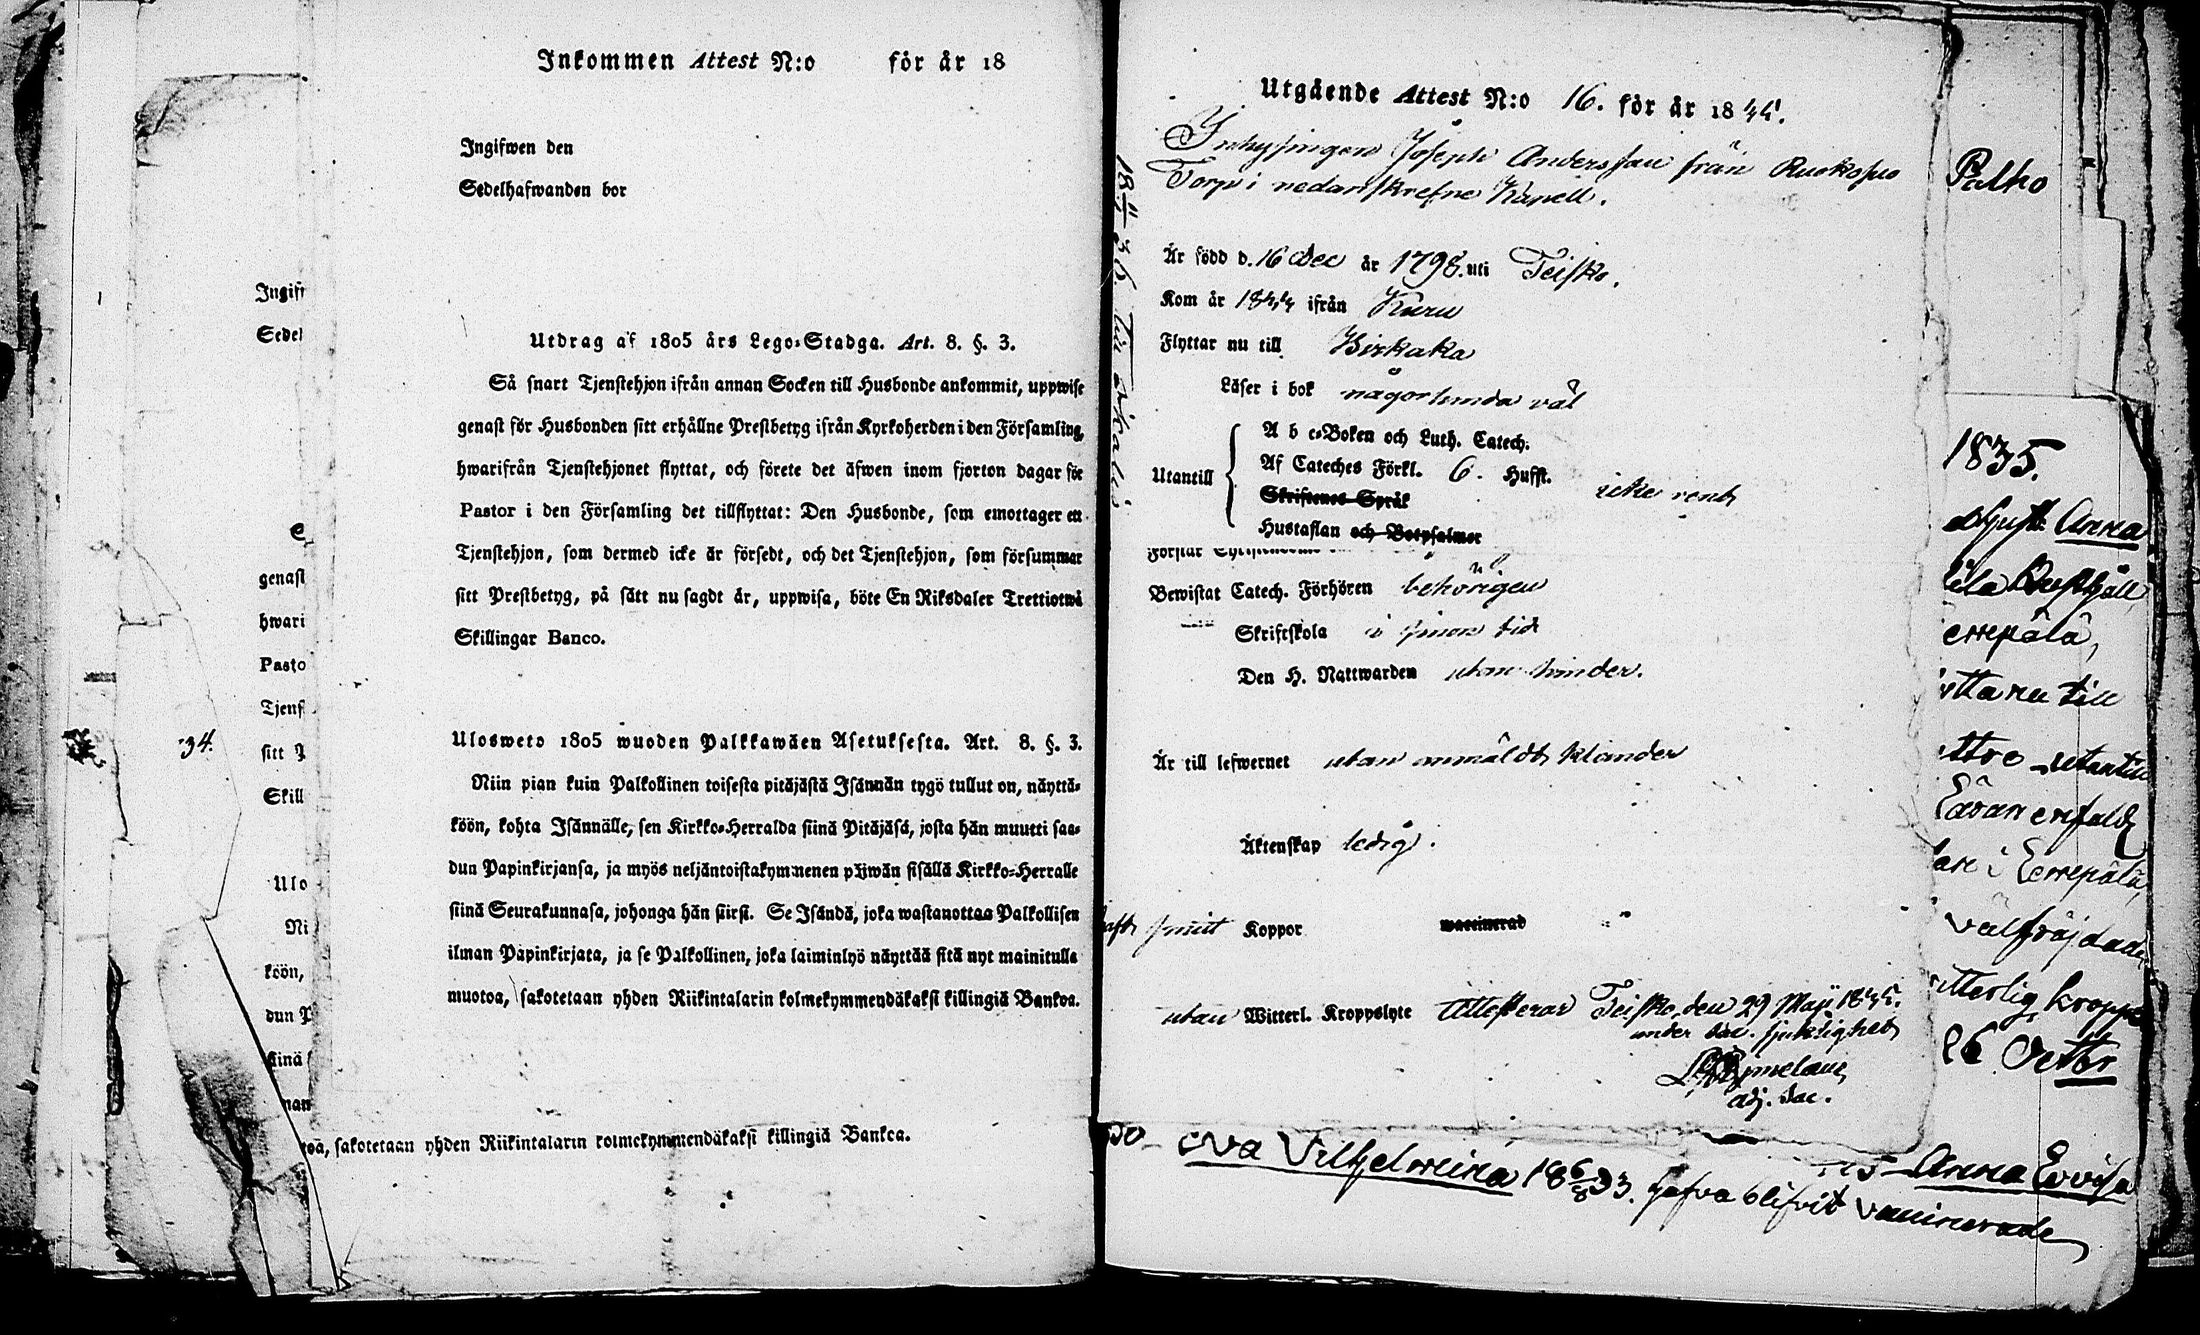 Inkommen Attest N:o för år 18
Ingifwen den
Sedelhafwanden bor
Utdrag af 1805 års Lego-Stadga. Art. 8. §. 3.
Så snart Tjenstehjon ifrån annan Socken till Husbonde ankommit, uppwise
genast för Husbonden sitt erhållne Prestbetyg ifrån Kyrkoherden i den Församling,
hwarifrån Tjenstehjonet flyttat, och förete det äfwen inom fjorton dagar för
Pastor i den Församling det tillflyttat: Den Husbonde, som emottager ett
Tjenstehjon, som dermed icke är försedt, och det Tjenstehjon, som försummar
sitt Prestbetyg, på sätt nu sagdt är, uppwisa, böte En Riksdaler Trettiotwå
Skillingar Banco.
Ulosweto 1805 wuoden Palkkawäen Asetuksesta. Art. 8. §. 3.
Niin pian kuin Palkollinen toisesta pitäjästä Isännän tygö tullut on, näyttä-
köön, kohta Isännälle, sen Kirkko-Herralda siinä Pitäjäsä, josta hän muutti saa-
dun Papinkirjansa, ja myös neljäntoistakymmenen päiwän sisällä Kirkko-Herralle
siinä Seurakunnasa, johonga hän siirsi. Se Isändä, joka wastanottaa Palkollisen
ilman Papinkirjata, ja se Palkollinen, joka laiminlyö näyttää sitä nyt mainitulla
muotoa, sakotetaan yhden Riikintalarin kolmekymmendäkaksi killingiä Bankoa.
sakotetaan yhden Riikintalarin kolmekymmendäkaksi killingiä Bankoa.
Ingif
Sedel
genast
hwari
Pasto
Tjens
34.
sitt P
Skill
Ulo
Ni
köön,
dun P
siinä
Utgående Attest N:o 16. för år 1844.
Inhysingen Joseph Andersson från Ruokosuo
Torp i nedanskrefne Kapell.
Är född d. 16 Dec år 1798. uti Teisko.
Kom år 1844 ifrån Kuru
Flyttar nu till Birkala
Läser i bok någorlunda väl
Utantill
A b c-Boken och Luth. Catech.
Af Cateches Förkl. 6. Hufst. icke rent
Skriftenes Språk
Hustaflan och Botpsalmer
Bewistat Catech. Förhören behörigen
Skriftskola i sinom tid
Den H. Nattwarden utan hinder.
Är till lefwernet utan anmäldt klander
Äktenskap ledig.
haft smitt Koppor waccinerad
utan Witterl. Kroppslyte Attesterar Teisko, den 29 Maji
under sjuklighet
adj. Sac.
Palho
1835.
Anna
Eerrepälä,
ytta nu till
ttre utantill
Läran enfald
are i Eerrepälä,
välfräjdade
itterlig kropps
26 Octbr
Eva Vilhelmina 18 6/8 33. hafva blifvit vaccinerade
Anna Lovisa